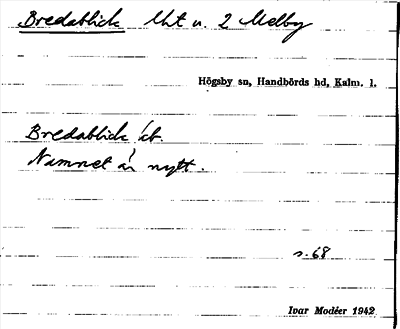 Bredablick lht u. 2 Melby
Högsby sn, Handbörds hd, Kalm. l.
Bredablick
Namnet är nytt.
s. 68
Ivar Modéer 1942